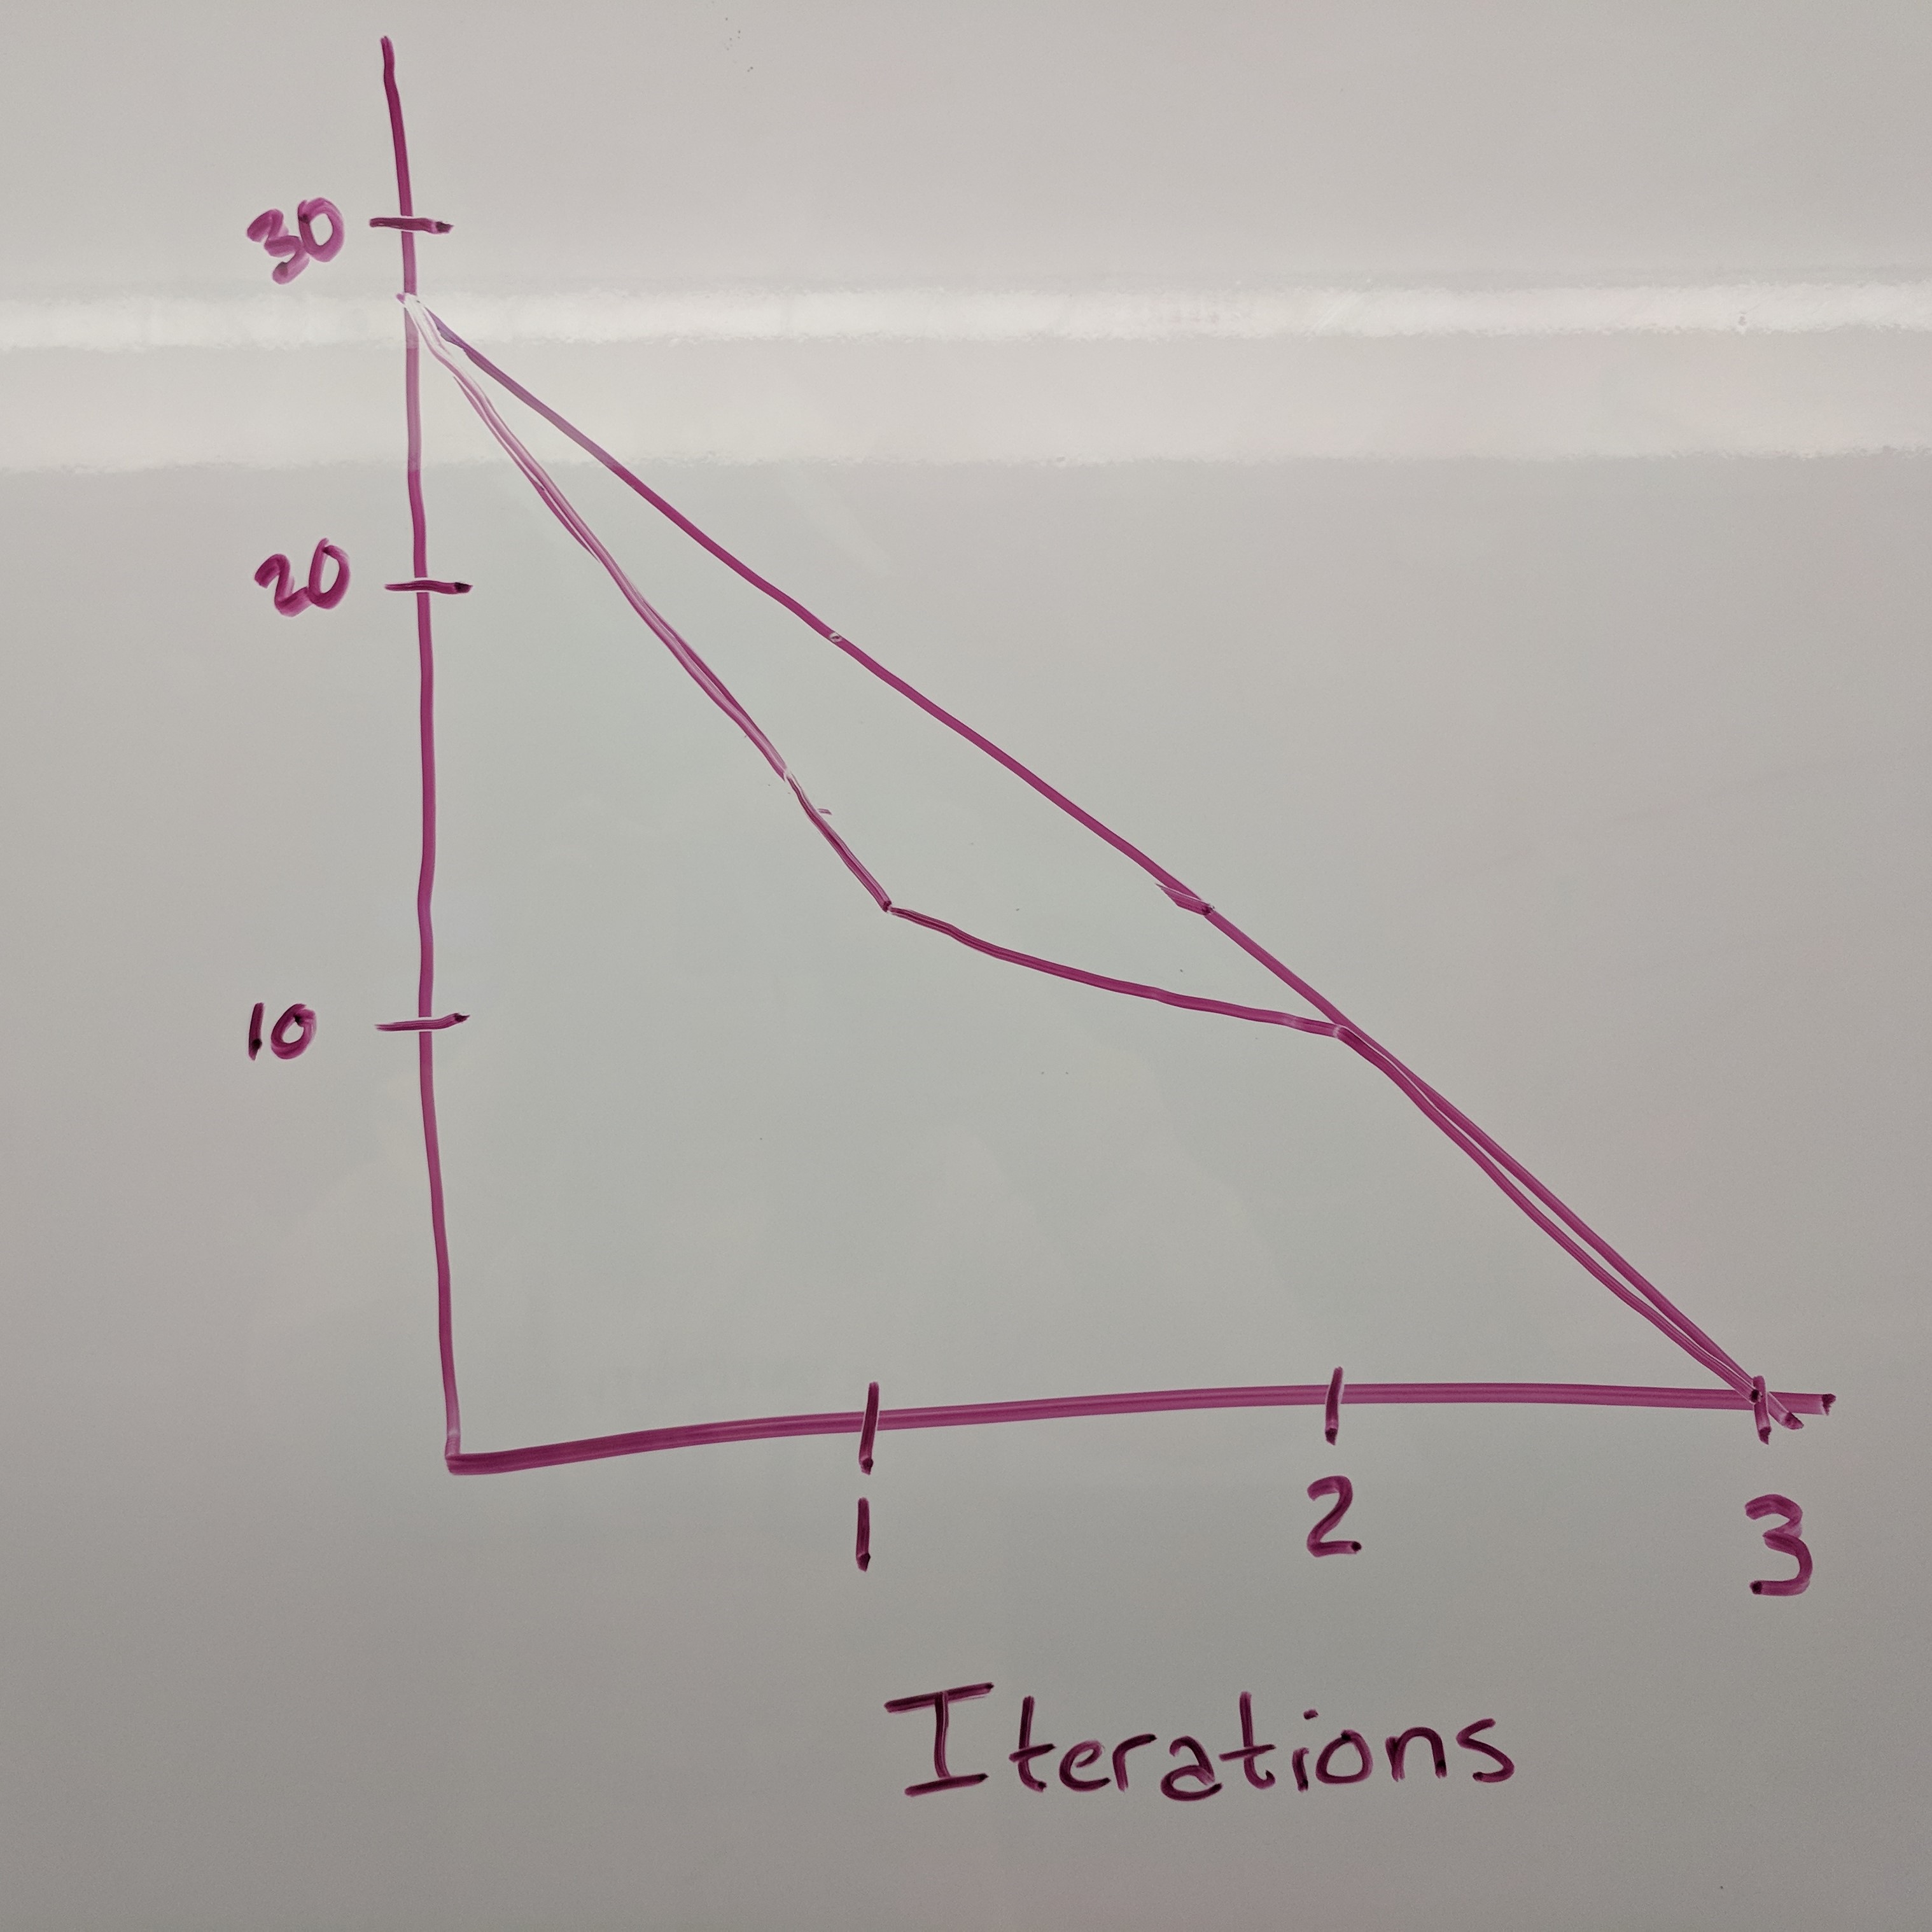 30
20
10
1 2 3
Iterations